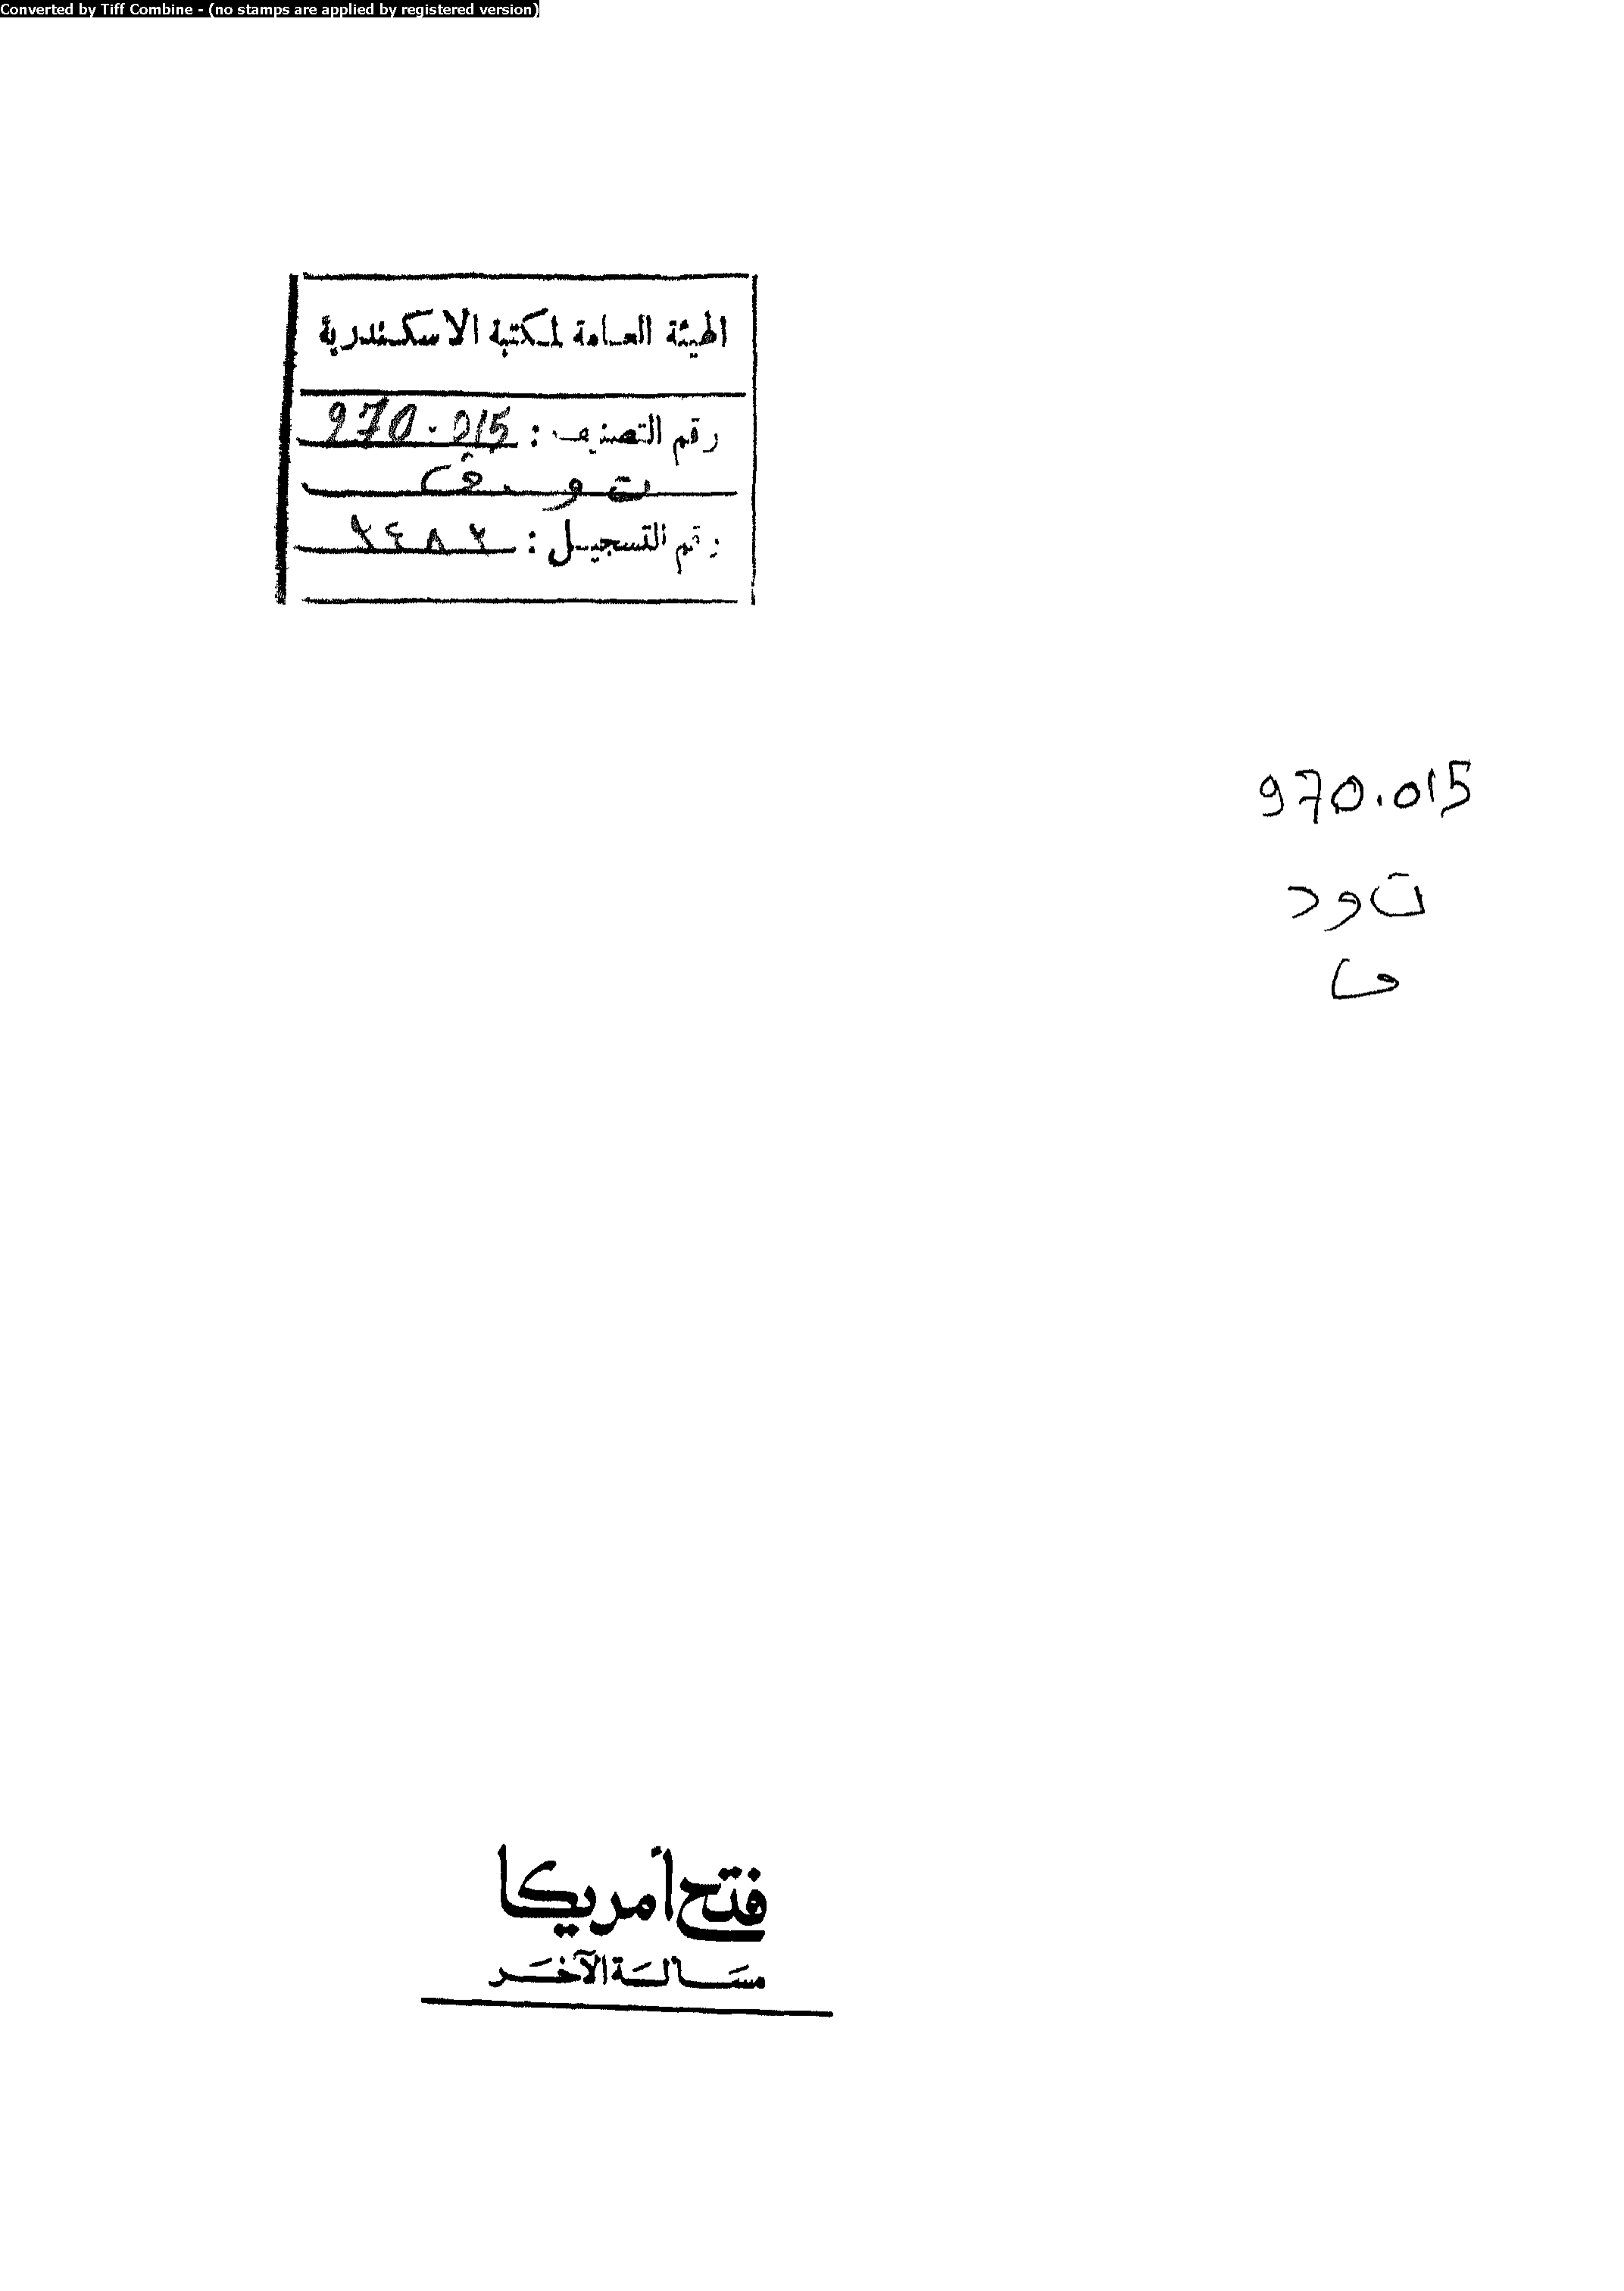 Converted by Tiff Combine - (no stamps are applied by registered version)
الهيئة العامة لمكتبة الاسكندرية
رقم التصنيف : 970.015
ت و ف
رقم التسجيل :
970.015
ت و د
ف
فتح أمريكا
مسَألَة الآخَر